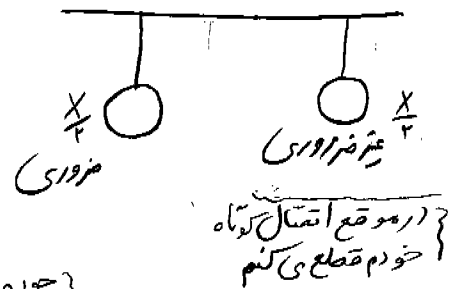 X/۲
ضروری
غیر ضروری
X/۲
{ در موقع اتصال کوتاه
خودم قطع می کنم